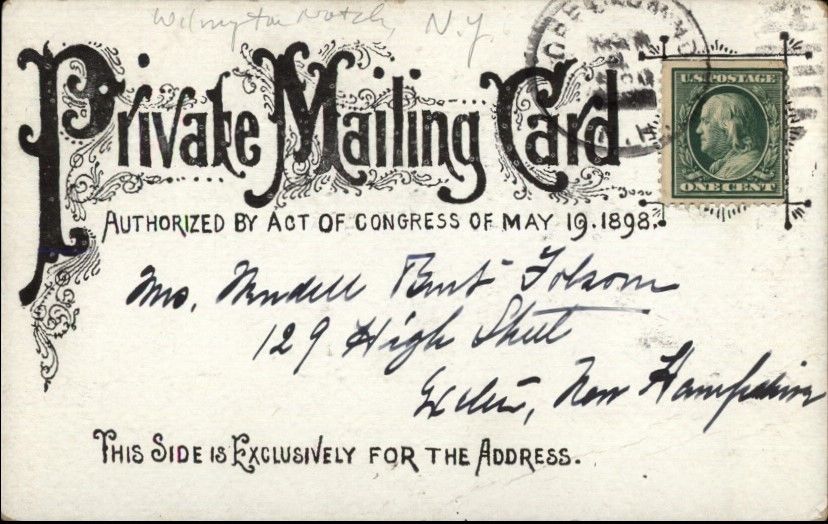 Wilmington Notch, N.Y.
Private Mailing Card
U.S. POSTAGE
ONE CENT
AUTHORIZED BY ACT OF CONGRESS OF MAY 19. 1898.
Mrs. Wendell Burt Folsom
129 High Street
Exeter, New Hampshire
THIS SIDE IS EXCLUSIVELY FOR THE ADDRESS.